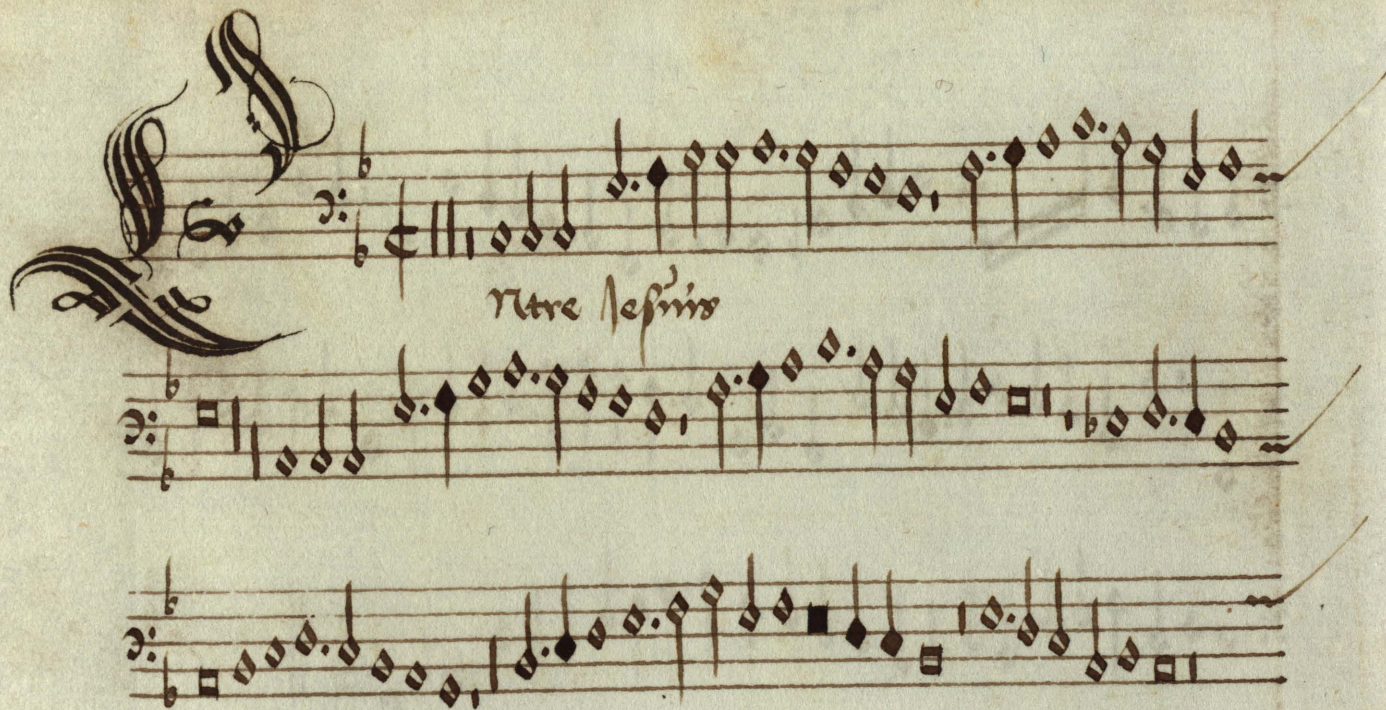 ENtre Jesuis